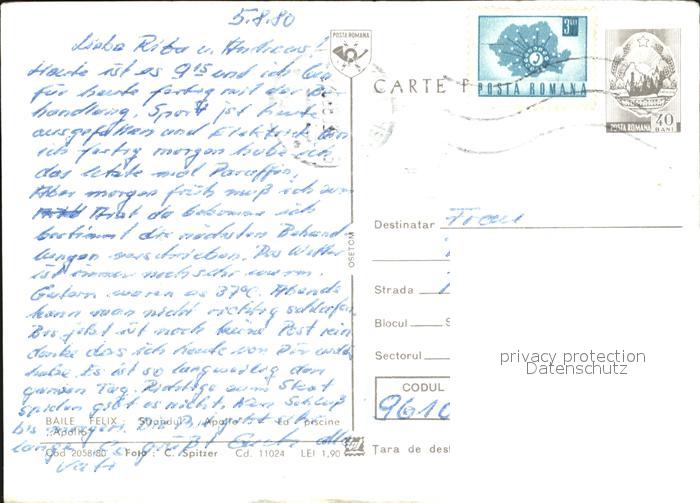 5.8.80
Liebe Rita u. Andreas!
Heute ist es 9 15 und ich bin
für heute fertig mit der Be-
handlung. Sport ist heute
ausgefallen und Elektrisch bin
ich fertig morgen habe ich
das letzte mal Paraffin.
Aber morgen früh muß ich zum
Arzt da bekomme ich
bestimmt die nächsten Behand
lungen verschrieben. Das Wetter
ist immer noch sehr warm.
Gestern waren es 37°C. Abends
kann man nicht richtig schlafen.
Bis jetzt ist noch keine Post
denke das ich heute von Dir
habe. Es ist so langweilig den
ganzen Tag. zum Skat
spielen gibt es nicht. Kein
bis
lange. Es grüßt Euch
Vati
BAILE FELIX: Strandul „Apollo” La piscine
„Apollo”
Cod 2058/80 Foto: C. Spitzer Cd. 11024 LEI 1,90
OSETOM
POSTA ROMANA
CARTE P
3
POSTA ROMANA
POSTA ROMANA
40
BANI
Destinatar Frau
Strada
Blocul
Sectorul
CODUL
9610
Tara de dest
privacy protection
Datenschutz